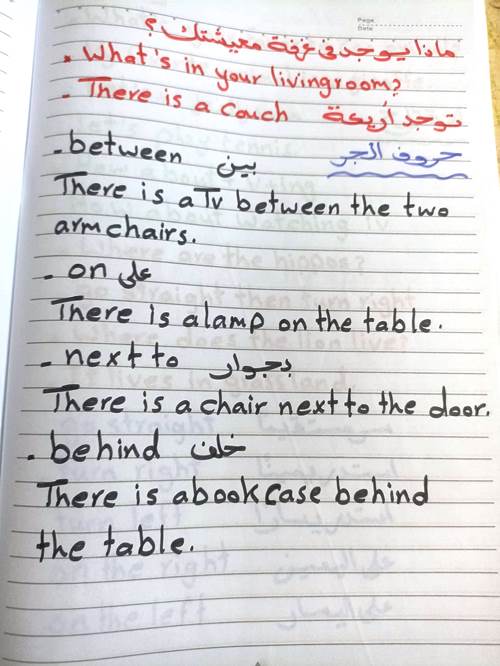 Page
Date
ماذا يوجد في غرفة معيشتك؟
. What's in your livingroom?
- There is a couch توجد أريعة
حروف الجر
- between بين
There is a Tv between the two
armchairs.
- on على
There is a lamp on the table.
- next to بجوار
There is a chair next to the door.
. behind خلف
There is a bookcase behind
the table.